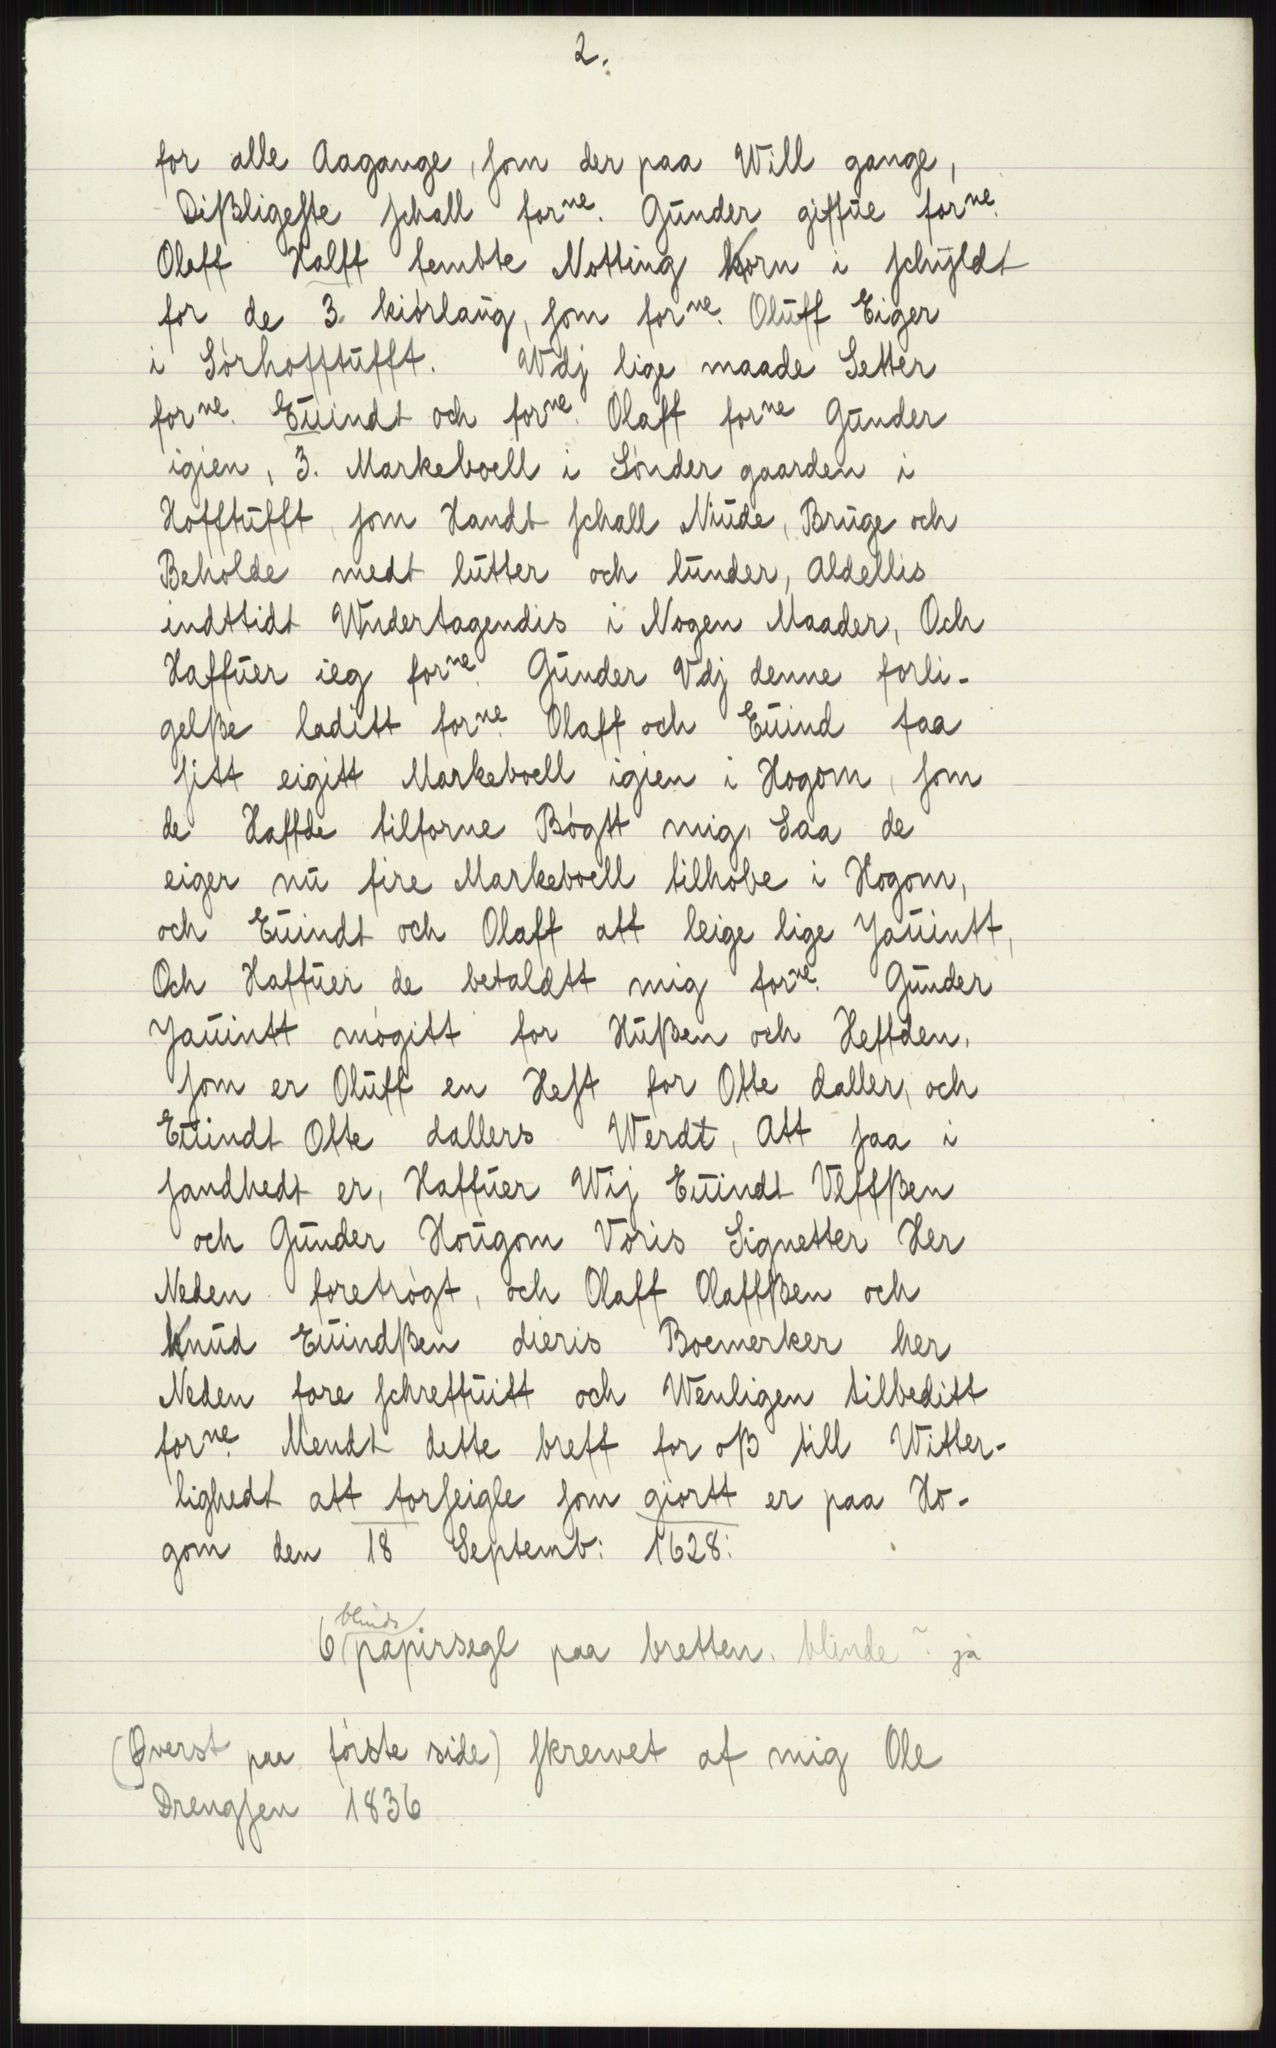 2.
for alle Aagange, som der paa Will gange,
Dißligeste schall forne. Gunder giffue forne.
Olaff Halff fembte Notting Korn i schyldt
for de 3. kiørlaug, som forne. Oluff Eiger
i Sørhofftufft. Wdj lige maade Setter
forne. Euindt och forne. Olaff forne Gunder
igien, 3. Markeboell i Sønder gaarden i
Hofftufft, som Handt schall Niude, Bruge och
Beholde medt lutter och lunder, Aldellis
indttidt Wndertagendis i Nogen Maader, Och
Haffuer ieg forne. Gunder Vdj denne forli-
gelße laditt forne. Olaff och Euind faa
sitt eigitt Markeboell igien i Hogom, som
de Haffde tilforne Bøgtt mig, Saa de
eiger nu fire Markeboell tilhobe i Hogom,
och Euindt och Olaff att leige lige Jauintt,
Och Haffuer de betaldtt mig forne. Gunder
Jauintt møgitt for Hußen och Heffden,
som er Oluff en Hest for Otte daller, och
Euindt Otte dallers Werdt, Att saa i
sandhedt er, Haffuer Wij Euindt Vlffßen
och Gunder Hougom Voris Signetter Her
Neden foretrøgt, och Olaff Olaffßen och
Knud Euindßen dieris Boemerker her
Neden fore schreffuitt och Wenligen tilbeditt
forne Mendt dette breff for oß till Witter-
lighedt att forseigle som giortt er paa Ho-
gom den 18 Septemb: 1628:
blinde
6 papirsegl paa bretten. blinde ~. ja
(Øverst paa første side) skrewet af mig Ole
Drengsen 1836